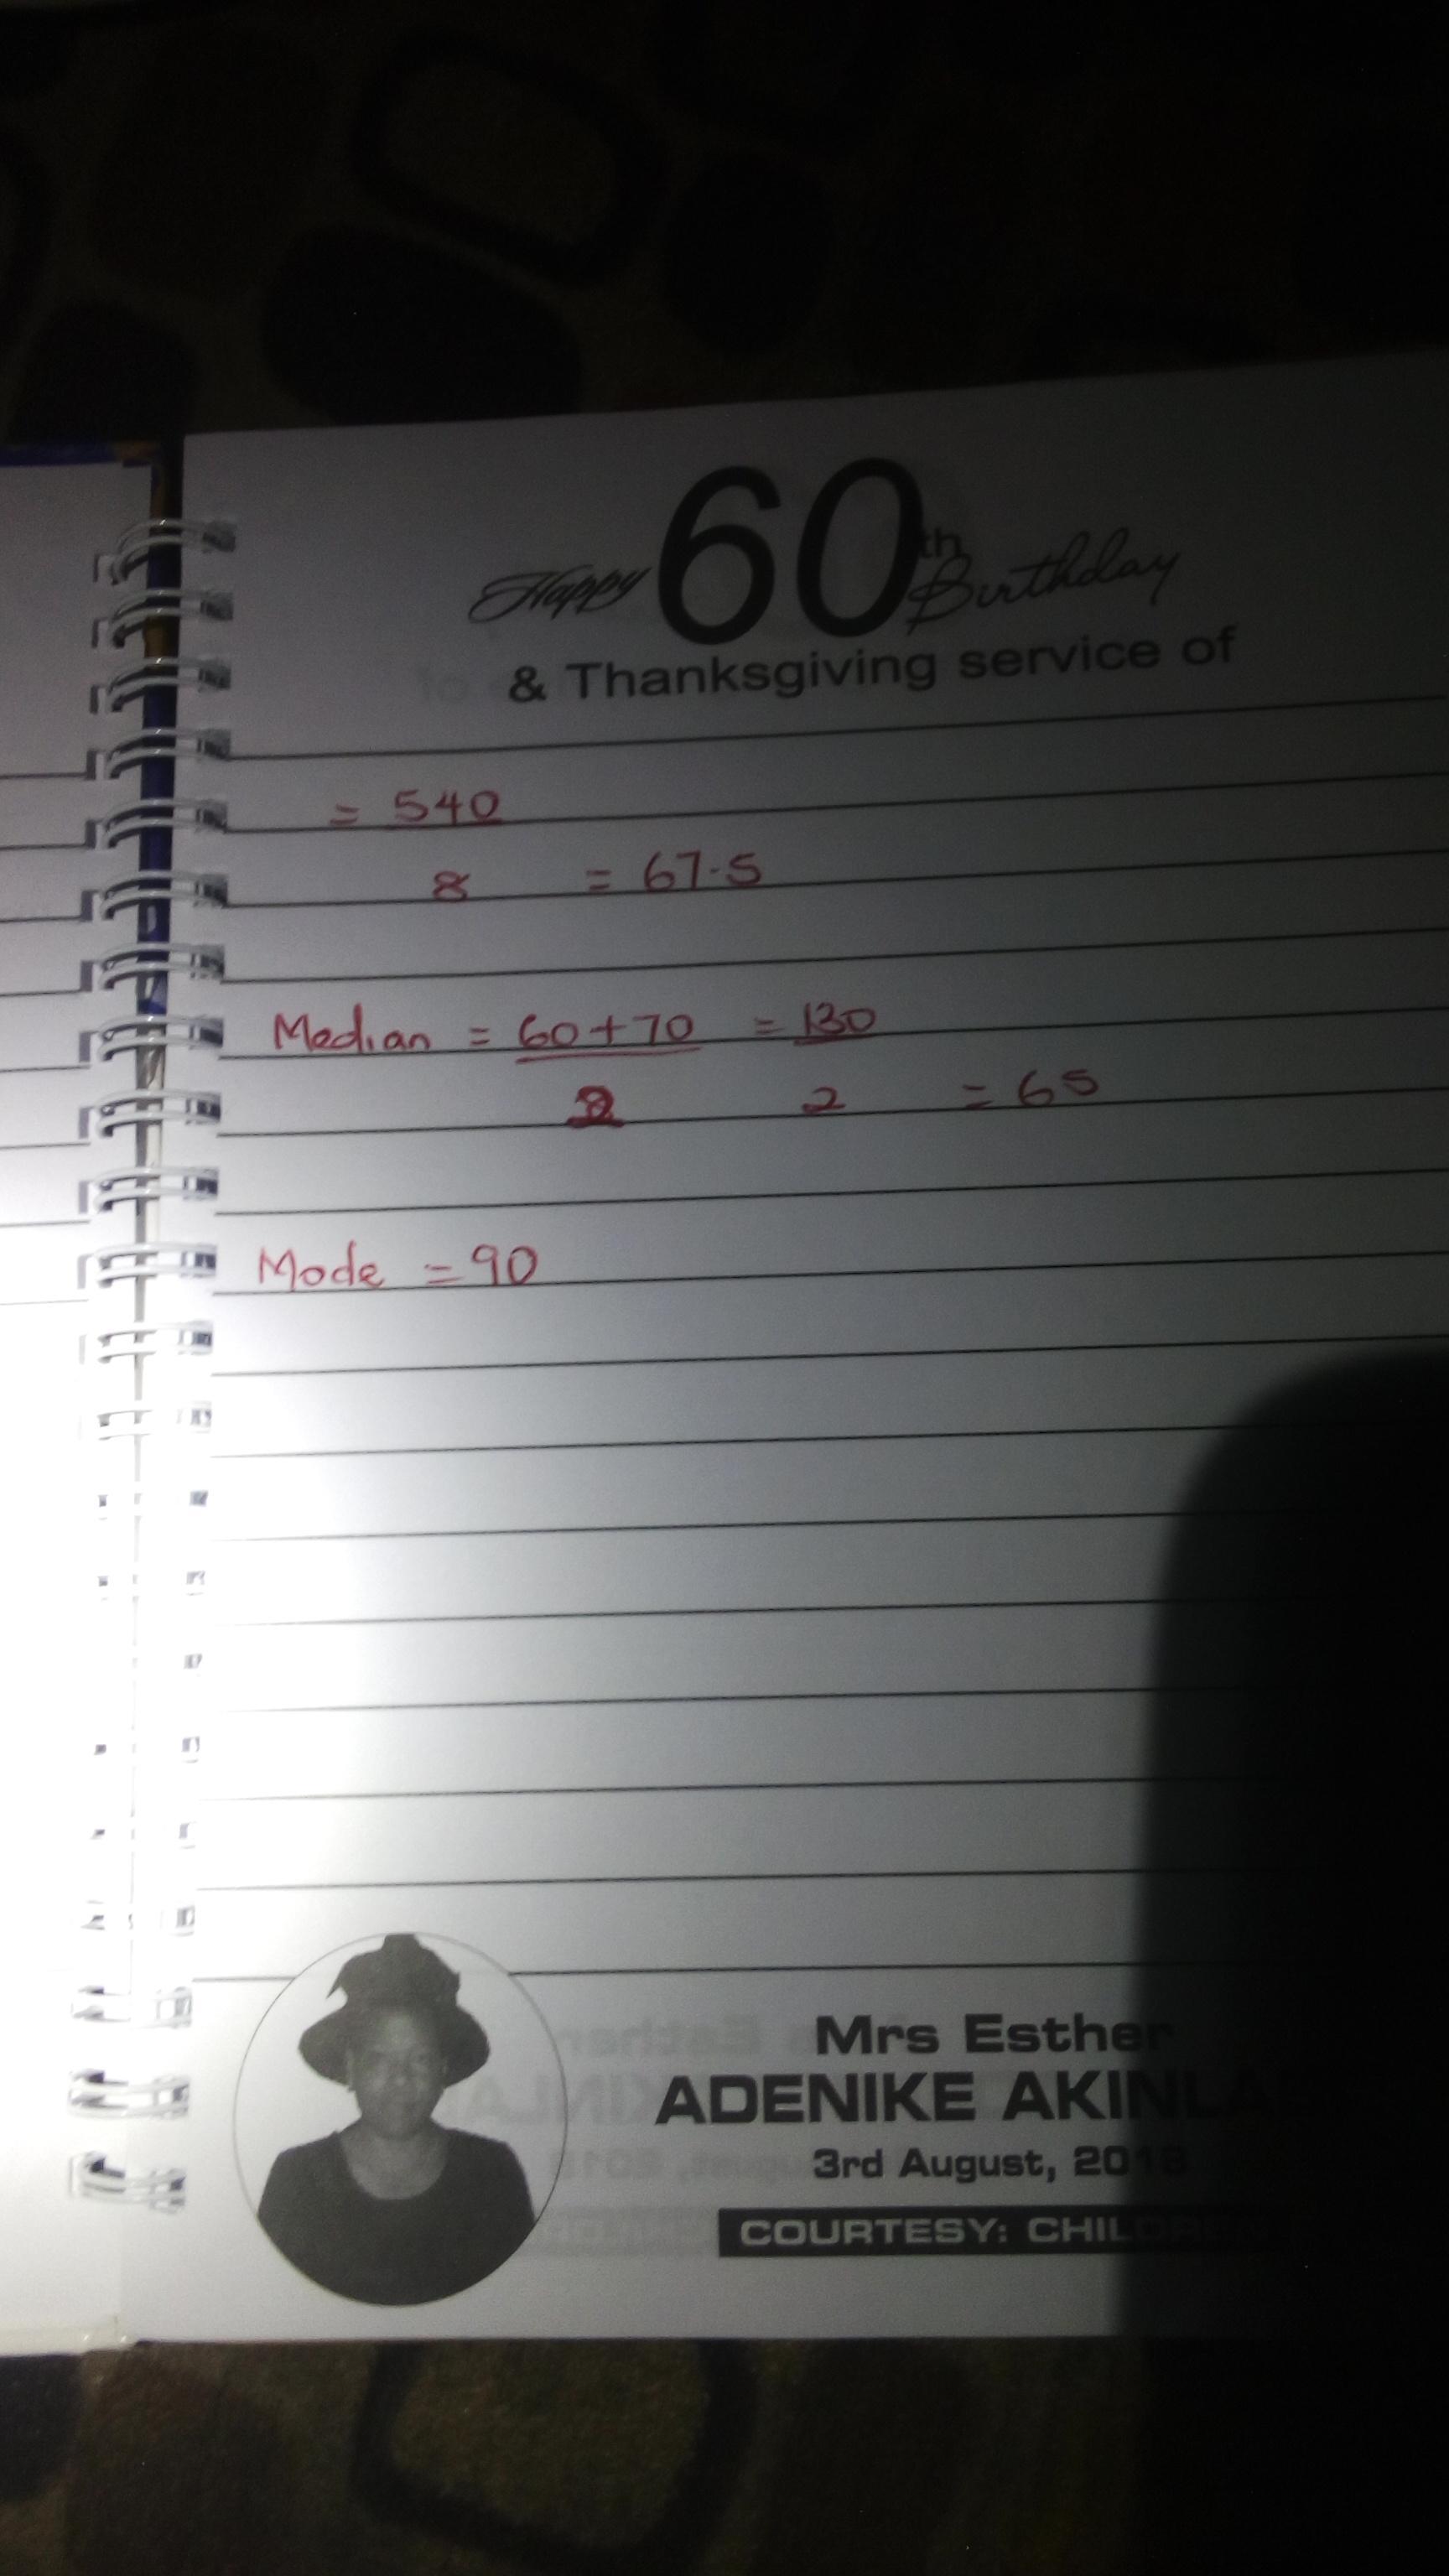 Happy 60th Birthday
& Thanksgiving service of
= 540
8 = 67.5
Median = 60+70 = 130
2 2 = 65
Mode = 90
Mrs Esther
ADENIKE
3rd August, 2018
COURTESY: CHILDREN